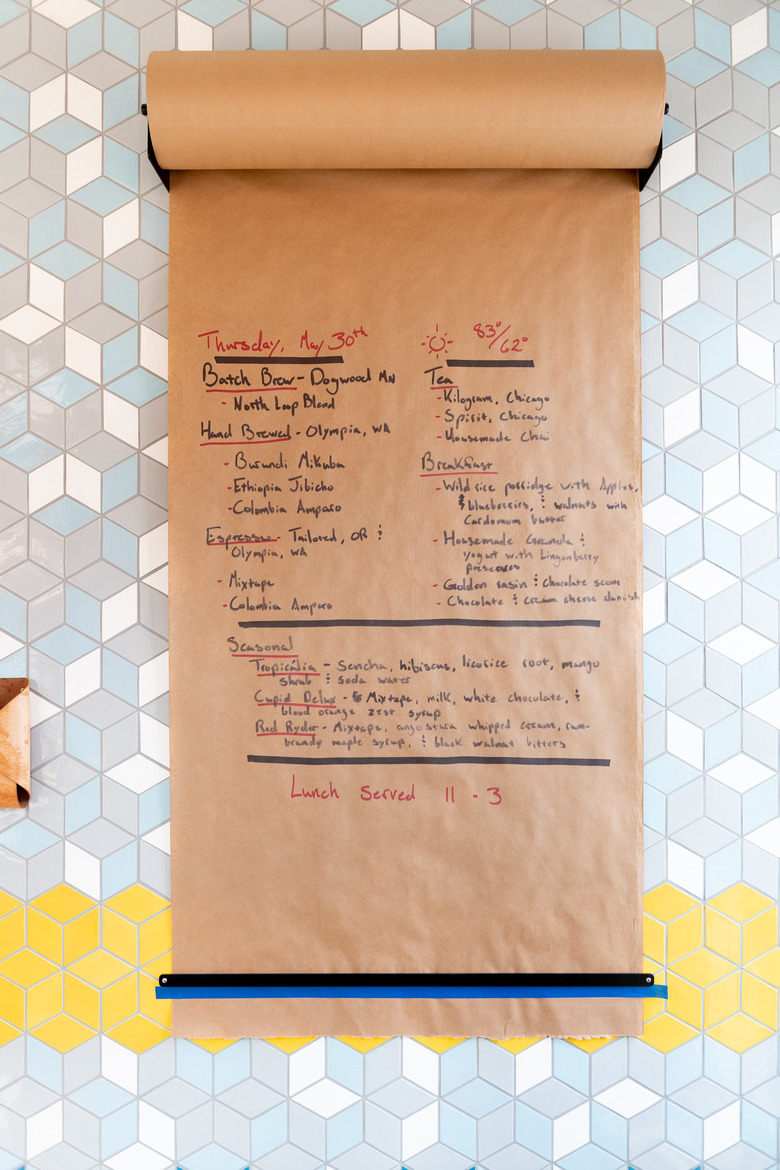 Thursday, May 30th
Batch Brew - Dogwood MN
- North Loop Blend
Hand Brewed - Olympia, WA
- Burundi Mikuba
- Ethiopia Jibicho
- Colombia Amparo
Espresso - Tailored, OR &
Olympia, WA
- Mixtape
- Colombia Amparo
83°/62°
Tea
- Kilogram, Chicago
- Spirit, Chicago
- Housemade Chai
Breakfast
- Wild rice porridge with Apples,
blueberries, & walnuts with
Cardomom butter
- Housemade Granola &
yogurt with Lingonberry
preserves
- Golden rasin & chocolate scone
- Chocolate & cream cheese danish
Seasonal
Tropicália - Sencha, hibiscus, licorice root, mango
shrub & soda water
Cupid Delux - Mixtape, milk, white chocolate, &
blood orange zest syrup
Red Ryder - Mixtape, angostura whipped cream, rum-
brandy maple syrup, & black walnut bitters
Lunch Served 11 - 3